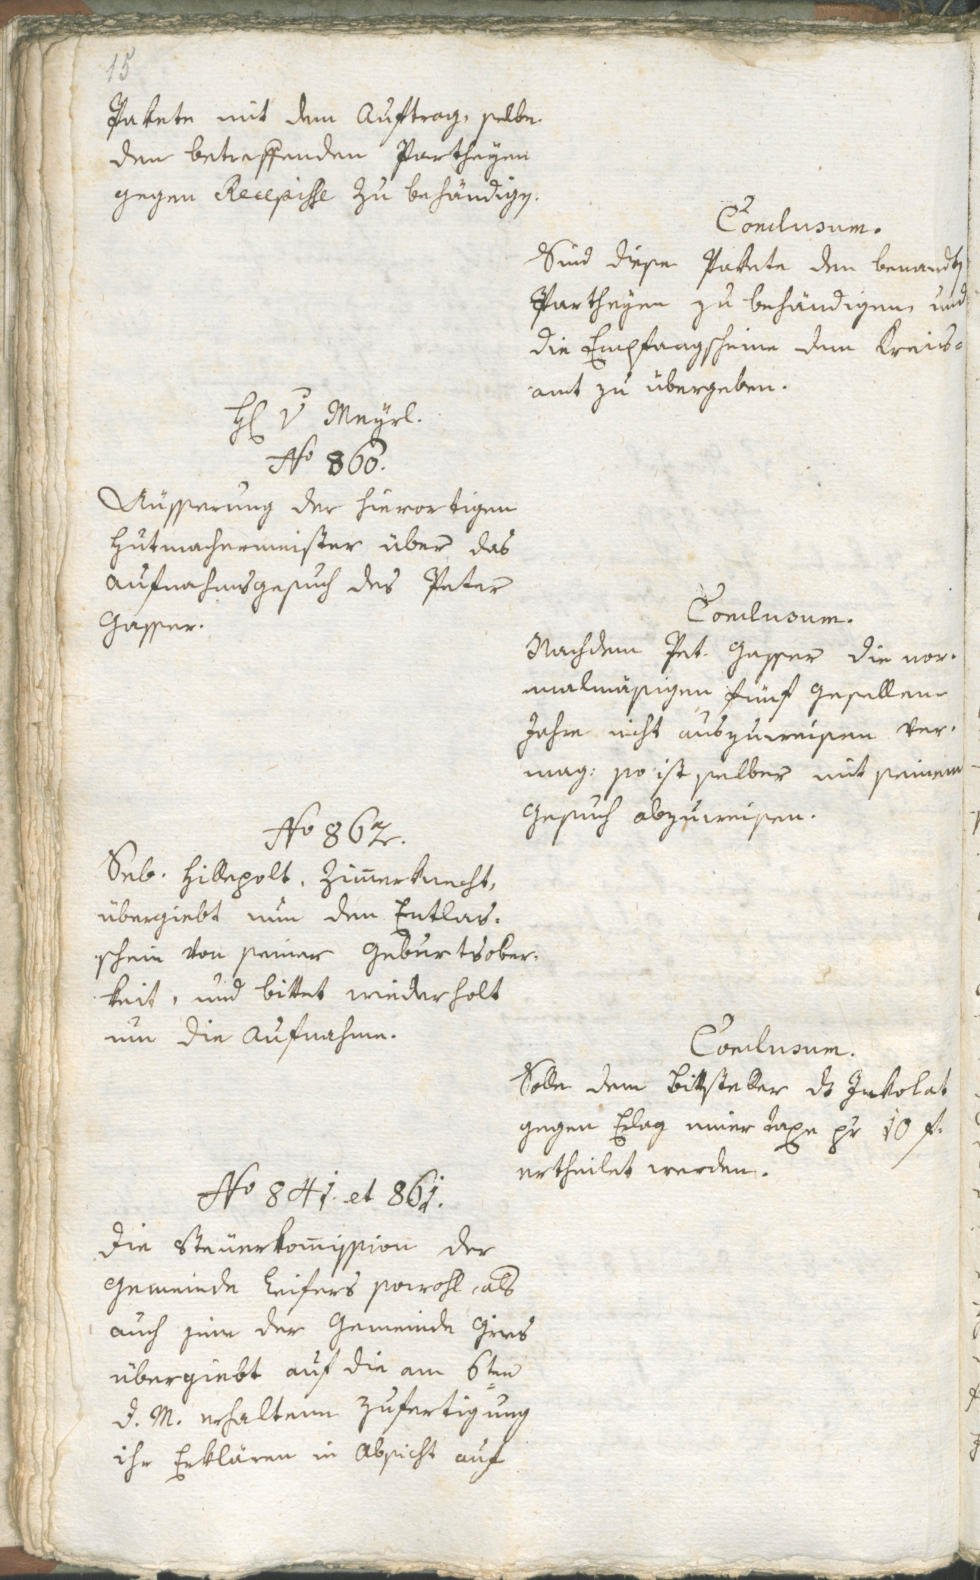 15
Pakete mit dem Auftrag, selbe
den betreffenden Partheyen
gegen Recepisse zu behändigen.
Conclusum.
Sind diese Pakete den benandten
Partheyen zu behändigen, und
die Empfangscheine dem Kreis-
amt zu übergeben.
H. v Meyrl.
No 860.
Aüsserung der hierortigen
Hutmachermeister über das
Aufnahmsgesuch des Peter
Gasser.
Conclusum.
Nachdem Pet. Gasser die nor-
malmäsigen fünf Gesellen-
Jahre nicht auszuweisen ver-
mag: so ist selber mit seinem
Gesuch abzuweisen.
No 862.
Seb. Hillepolt, Zimerknecht,
übergiebt nun den Entlas-
schein von seiner Geburtsober-
keit, und bittet wiederholt
um die Aufnahme.
Conclusum.
Solle dem Bittsteller ds Inkolat
gegen Erlag einer Taxe pr 10 f.
ertheilet werden.
No 841. et 861.
Die Steuerkomission der
Gemeinde Leifers sowohl, als
auch jene der Gemeinde Gries
übergiebt auf die am 6ten
d. M. erhaltene Zufertigung
ihr Erklären in Absicht auf